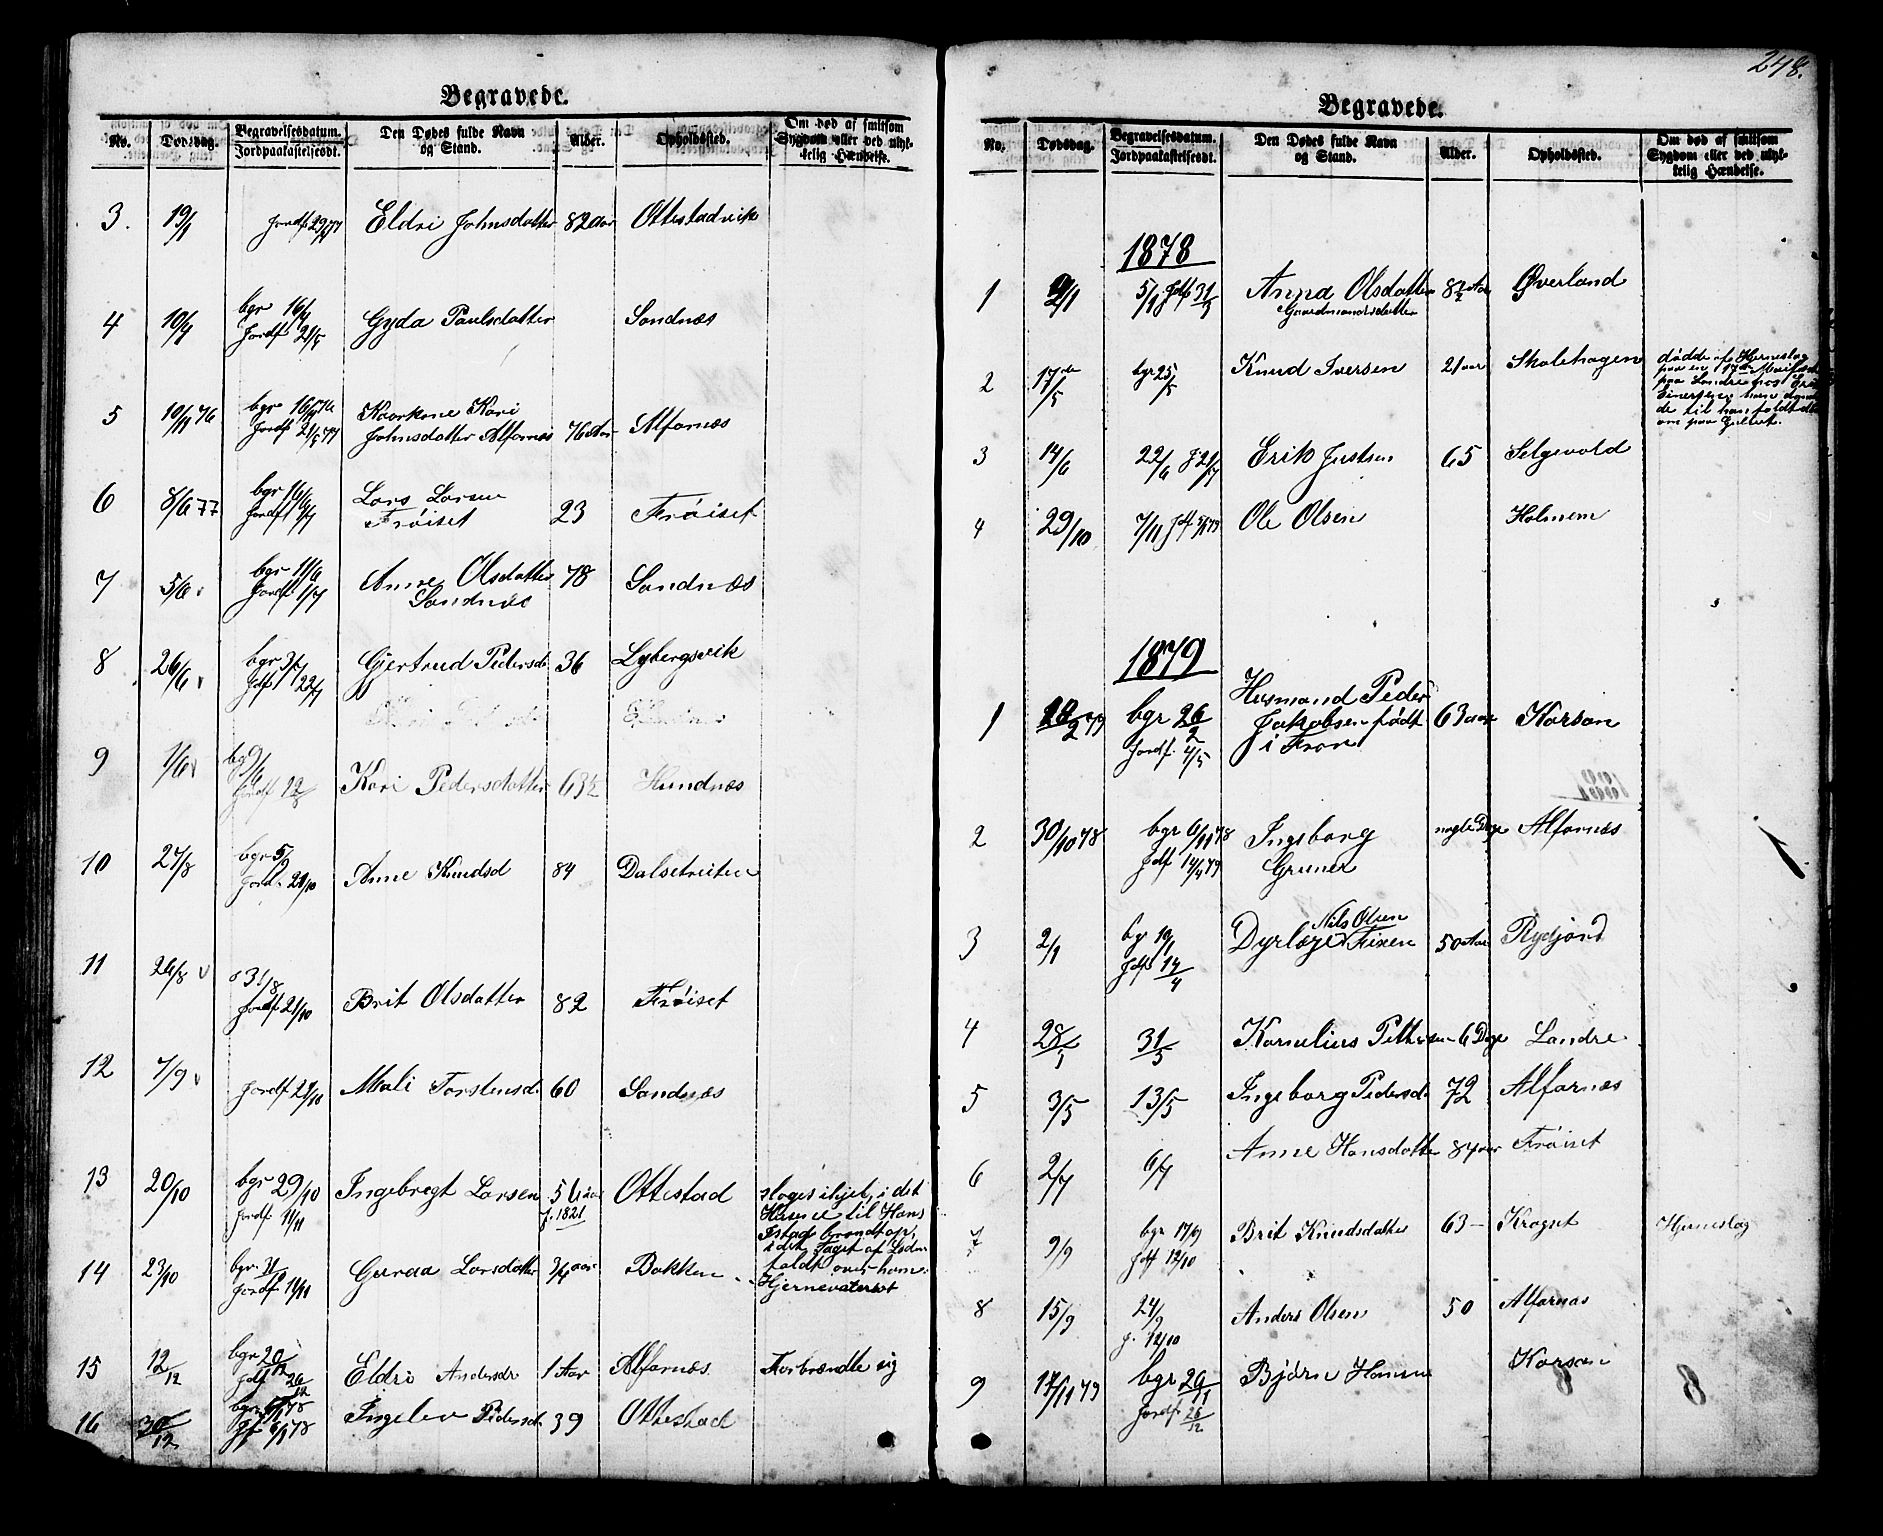 Begravede.
No. Dødsdag. Begravelsesdatum. Jordpaakastelsesdt. Den Dødes fulde Navn og Stand. Alder. Opholdssted. Om død af smitsom Sygdom eller ved ulykkelig Hændelse.
3. 19/1 Jordf. Eldri Johnsdatter 82 aar Ottestadvik
4 bgr 16/4 Jordf. 21/5 Gyda Paulsdatter Sandnæs
5 76 bgr 16/ 76 Jordf. 21/5 77 Kaarkone Kari
Johnsdatter Alfarnæs 76 Aar Alfarnæs
6 8/6 77 bgr 16/6 Jordf. Lars Larsen
Frøiset 23 Frøiset
7 5/6 bgr 11/6 Jordf. 1/7 Anne Olsdatter 78 Sandnæs
Sandnæs
8 26/6 bgr 3/7 Jdf 22/7 Gjertrud Pedersd. 36 Lybergsvik
9 1/6 bg 9/6 Jordf 12/8 Kari Pedersdatter 63 Hundnæs
10 27/8 bgr 5/9 Jord. 21/10 Anne Knudsd 84 Dalsetreiten
11 26/8 31/8 Jordf 21/10 Brit Olsdatter 82 Frøiset
12 7/9 Jordf 21/10 Mali Torstensd. 60 Sandnæs
13 20/10 bgr 29/10 Jordf. 11/11 Ingebregt Larsen 56 aar Ottestad slages ihjel, i det
f. 1821 Husene til Hans
Istad brændt op,
i det Taget af Laden
faldt over ham.
14 23/10 bgr. Jordf. 11/11 Guraa Larsdatter 3/4 aar Bakken Hjernevatersot
15 12/12 bgr 20/12 Jdf 26/12 Eldri Andersdr 1 Aar Alfarnæs Forbrændte sig
16 30/12 bgr 78 Jf 6/1 78 Ingelev Pedersd. 39 Ottestad
248.
Begravede.
No. Dødsdag. Begravelsesdatum. Jordpaakastelsesdt. Den Dødes fulde Navn og Stand. Alder. Opholdssted. Om død af smitsom Sygdom eller ved ulykkelig Hændelse.
1878
1 2/1 5/1 Jdf 31/5 Anna Olsdatter 8 1/2 Aar Øverland
Gaardmandsdatter
2 17de/5 bgr 25/5 Knud Iversen 21 aar Skolehagen dødde af Hjerneslag
paa en 17de Mai
paa Landre hos
Einersen, han
de til han faldt
om paa Gulvet.
3 14/6 22/6 J 21/7 Erik Justsen 65 Selgevold
4 29/10 7/11 Jdf 5/1 79 Ole Olsen Holmem
1879
1 18/2 79 bgr 26/2 Jordf. 4/5 Husmand Peder
Jakobsen født 63 aar Korsan
i Fron
2 30/10 78 bgr 6/11 78 Jdf 14/4 79 Ingeborg nogle Dage Alfarnæs
Gruner
3 2/1 bg 19/1 Jdf 14/4 Dyrlæge Nils Olsen Frisen 50 Aar Rydjord
4 28/1 31/5 Kornelius Pettersen 6 Dage Landre
5 3/5 13/5 Ingeborg Pedersd. 72 Alfarnæs
6 2/7 6/7 Anne Hansdatter 84 aar Frøiset
7 9/9 bgr 17/9 Jdf 12/10 Brit Knudsdatter 63 Krogset Hjerneslag
8 15/9 24/9 J. 12/10 Anders Olsen 50 Alfarnæs
9 17/11 79 bgr 26/11 Jordf. 26/12 Bjørn Hansen Korsan